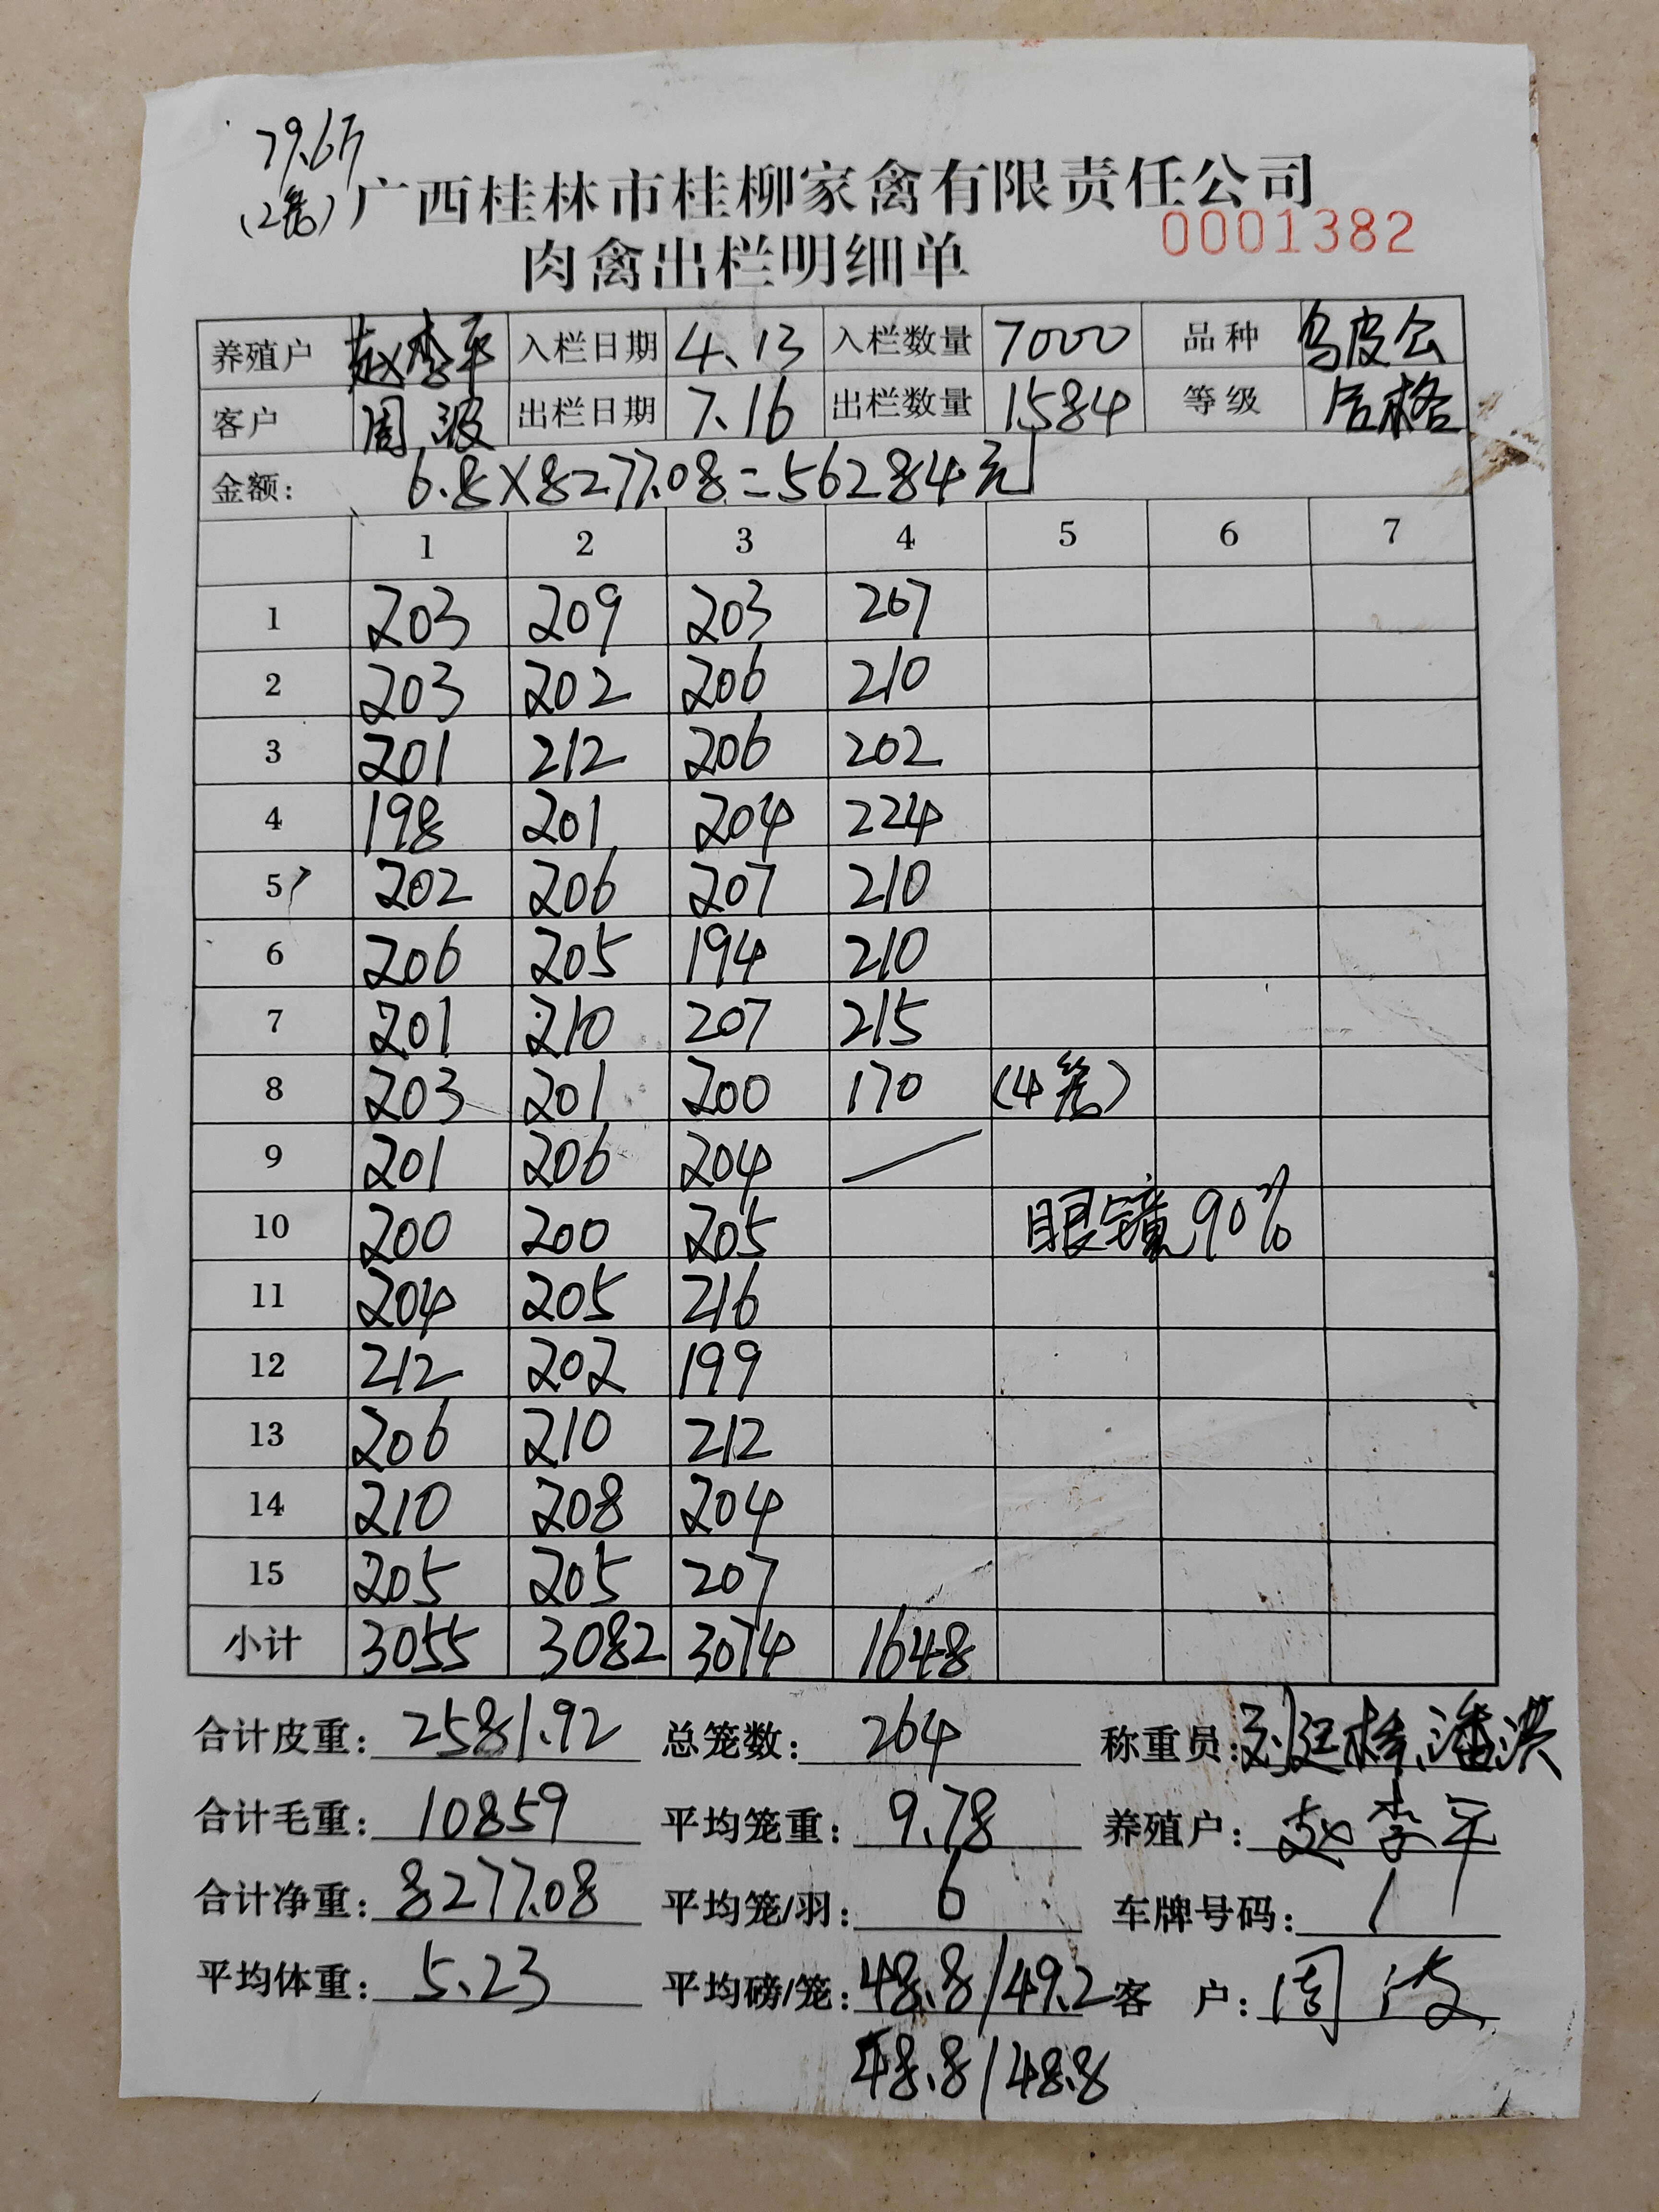 79.6斤
(2笼)
广西桂林市桂柳家禽有限责任公司
0001382
肉禽出栏明细单
养殖户 赵李平 入栏日期 4.13 入栏数量 7000 品种 乌皮公
客户 周波 出栏日期 7.16 出栏数量 1584 等级 合格
金额: 6.8×8277.08=56284元
1 2 3 4 5 6 7
1 203 209 203 207
2 203 202 206 210
3 201 212 206 202
4 198 201 204 224
5 202 206 207 210
6 206 205 194 210
7 201 210 207 215
8 203 201 200 170 (4笼)
9 201 206 204 /
10 200 200 205 眼镜90%
11 204 205 216
12 212 202 199
13 206 210 212
14 210 208 204
15 205 205 207
小计 3055 3082 3074 1648
合计皮重: 2581.92 总笼数: 264 称重员: 潘洪
合计毛重: 10859 平均笼重: 9.78 养殖户: 赵李平
合计净重: 8277.08 平均笼/羽: 6 车牌号码: /
平均体重: 5.23 平均磅/笼: 48.8/49.2 客 户: 周波
48.8/48.8